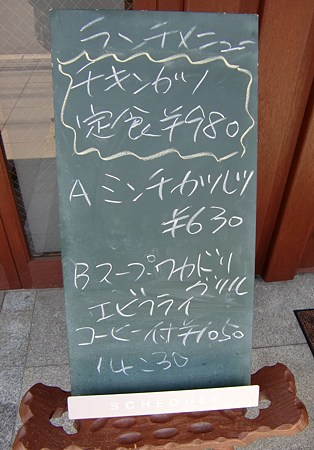 ランチメニュー
チキンカツ
定食¥980
A ミンチカツレツ
¥630
Bスープ・ワカドリ
グリル
エビフライ
コーヒー付¥1050
14:30
SCHEDULE